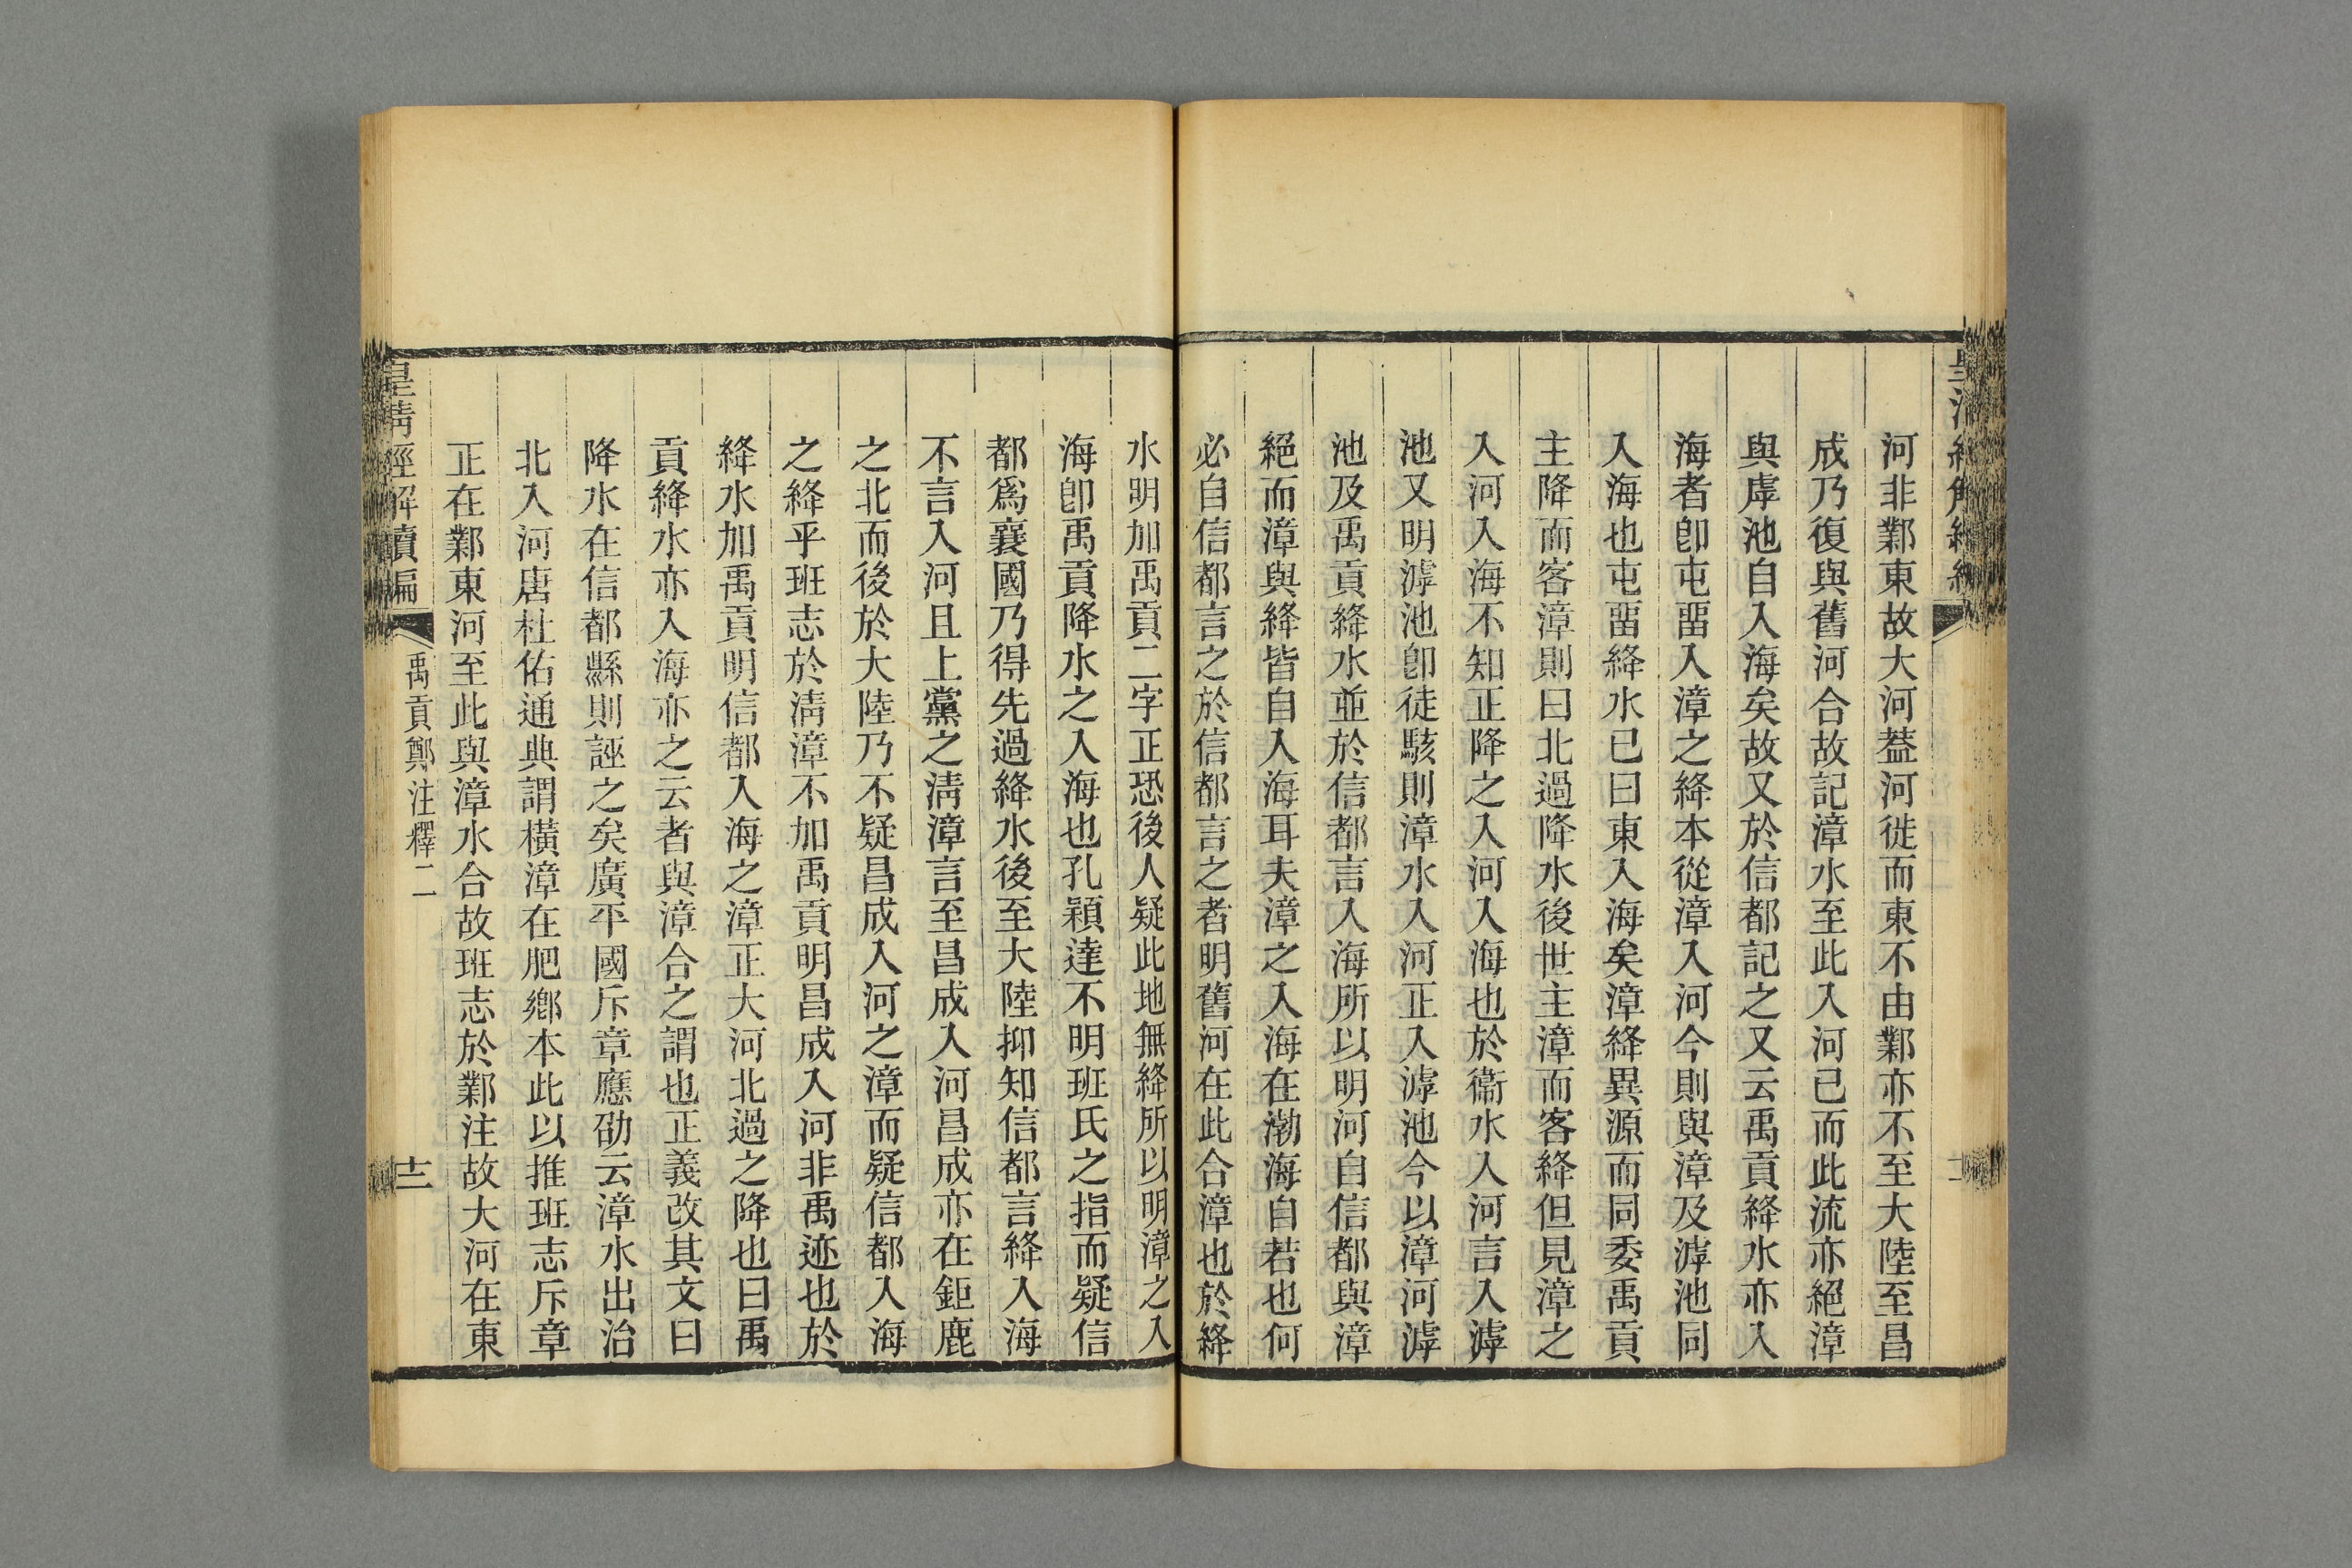 河非鄴東故大河葢河徙而東不由鄴亦不至大陸至昌
成乃復與舊河合故記漳水至此入河已而此流亦絕漳
與虖池自入海矣故又於信都記之又云禹貢絳水亦入
海者卽屯畱入漳之絳本從漳入河今則與漳及滹池同
入海也屯畱絳水已曰東入海矣漳絳異源而同委禹貢
主降而客漳則曰北過降水後世主漳而客絳但見漳之
入河入海不知正降之入河入海也於衞水入河言入滹
池又明滹池卽徒駭則漳水入河正入滹池今以漳河滹
池及禹貢絳水並於信都言入海所以明河自信都與漳
絕而漳與絳皆自入海耳夫漳之入海在渤海自若也何
必自信都言之於信都言之者明舊河在此合漳也於絳
水明加禹貢二字正恐後人疑此地無絳所以明漳之入
海卽禹貢降水之入海也孔穎達不明班氏之指而疑信
都爲襄國乃得先過絳水後至大陸抑知信都言絳入海
不言入河且上黨之淸漳言至昌成入河昌成亦在鉅鹿
之北而後於大陸乃不疑昌成入河之漳而疑信都入海
之絳乎班志於淸漳不加禹貢明昌成入河非禹迹也於
絳水加禹貢明信都入海之漳正大河北過之降也曰禹
貢絳水亦入海亦之云者與漳合之謂也正義改其文曰
降水在信都縣則誣之矣廣平國斥章應劭云漳水出治
北入河唐杜佑通典謂橫漳在肥鄉本此以推班志斥章
正在鄴東河至此與漳水合故班志於鄴注故大河在東
皇淸經解續編
禹貢鄭注釋二
十二